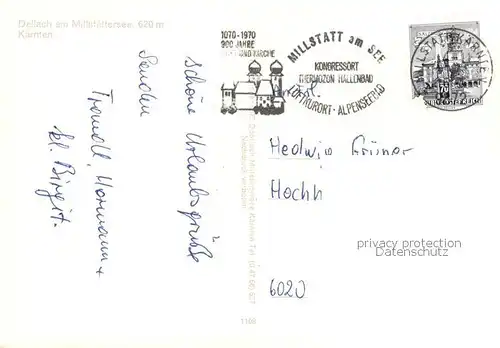 Dellach am Millstättersee, 620 m
Kärnten
1070-1970
900 JAHRE
MILLSTATT am SEE
KONGRESSORT
THERMOZON HALLENBAD
LUFTKURORT-ALPENSEEBAD
MILLSTATT, KÄRNTEN
REPUBLIK ÖSTERREICH
schöne Urlaubsgrüße
Senden
Traudl, Hermann +
kl. Birgit.
Hedwig
Hochh
6020
privacy protection
Datenschutz
1108